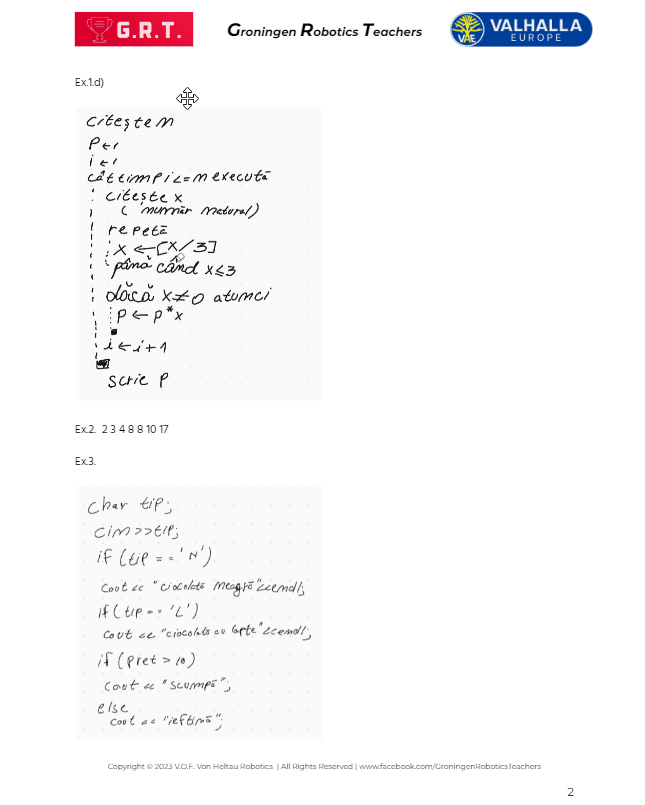 G.R.T.
Groningen Robotics Teachers
VALHALLA
EUROPE
VAE
Ex.1.d)
citește n
P←1
i←1
cât timp i<=n execută
citește x
( număr natural)
repetă
x ← [x/3]
până când x≤3
dacă x≠0 atunci
p ← p*x
i ← i+1
scrie P
Ex.2. 2 3 4 8 8 10 17
Ex.3.
char tip;
cin>>tip;
if (tip == 'N')
cout << "ciocolată neagră"<<endl;
if( tip == 'L')
cout << "ciocolata cu lapte"<<endl;
if (pret > 10)
cout << "scumpă";
else
cout << "ieftină";
Copyright © 2023 V.O.F. Von Heltau Robotics | All Rights Reserved | www.facebook.com/GroningenRoboticsTeachers
2